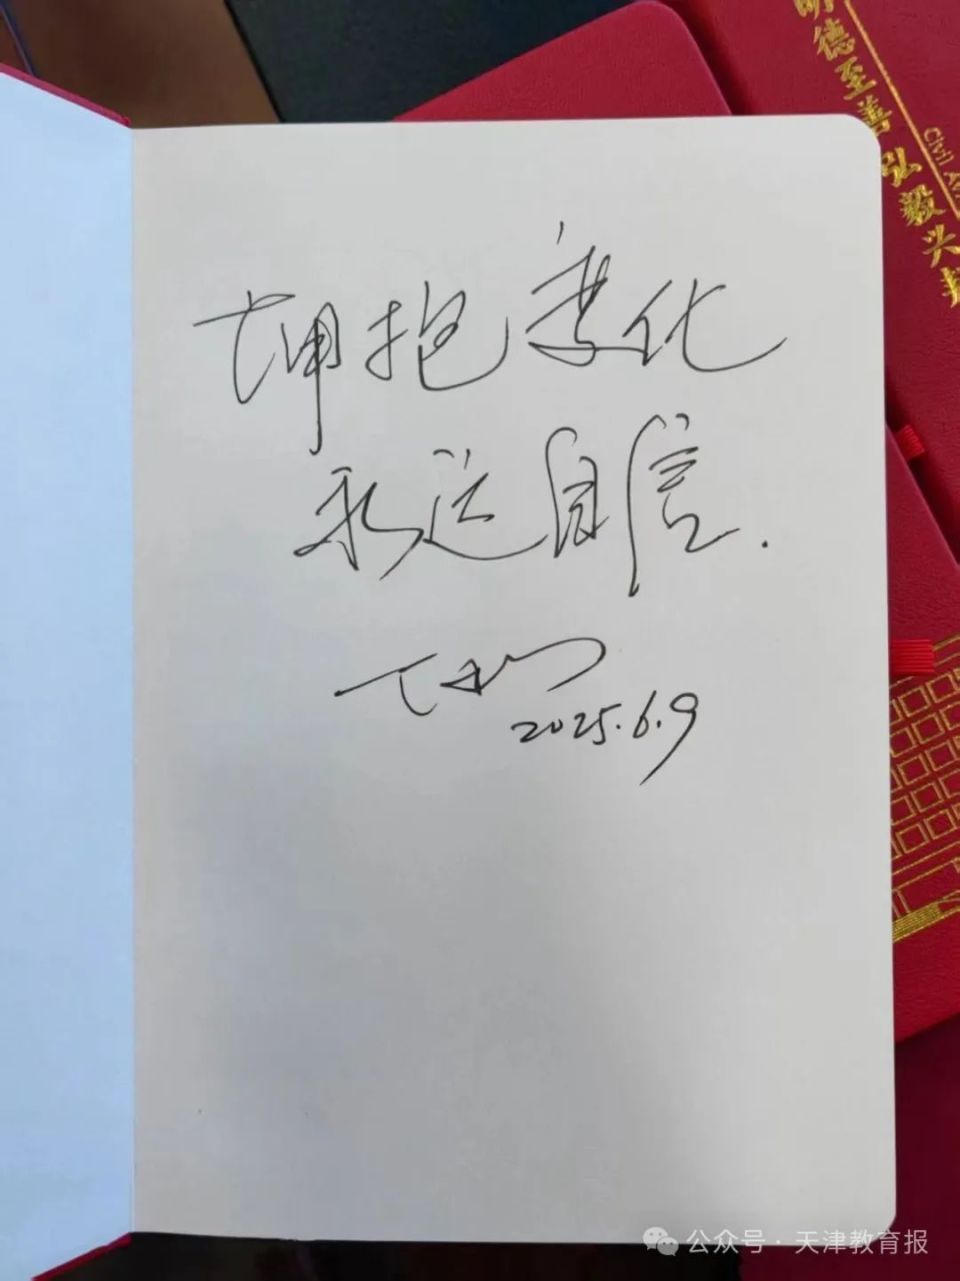 拥抱变化
永远自信.
2025.6.9
明德至善 弘毅兴
Civil A
公众号·天津教育报